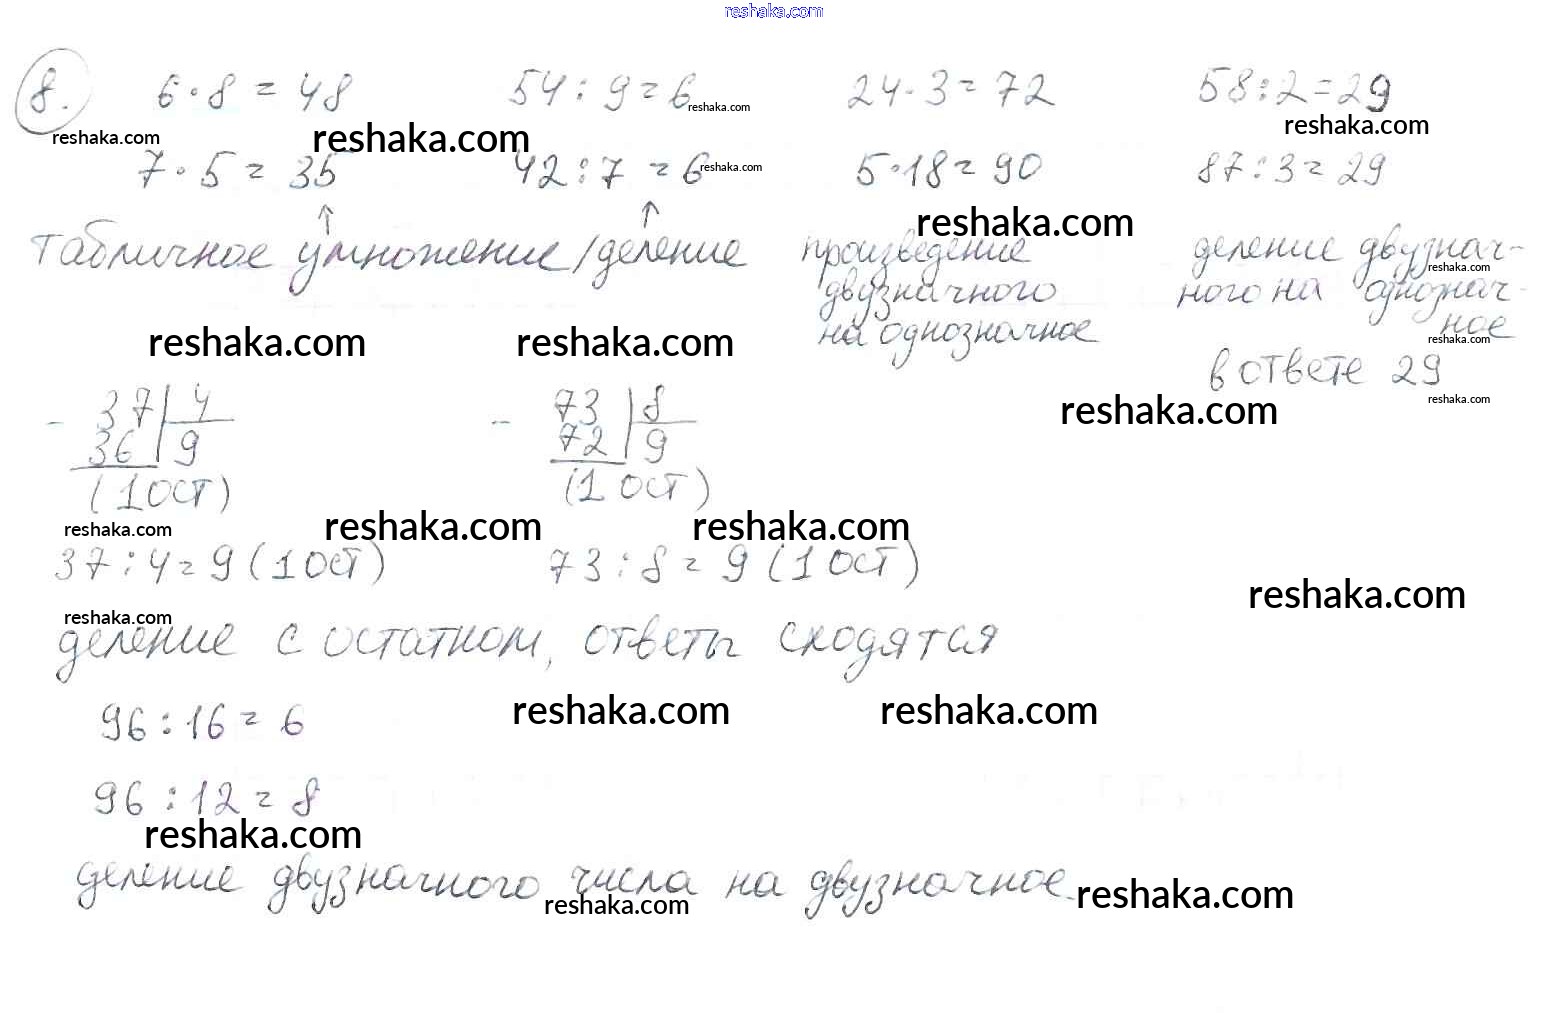 reshaka.com
8. 6·8=48 54:9=6 24·3=72 58:2=29
reshaka.com reshaka.com reshaka.com reshaka.com
7·5=35 42:7=6 5·18=90 87:3=29
reshaka.com reshaka.com
табличное умножение/деление
произведение
двузначного
на однозначное
деление двузнач-
reshaka.com
ного на однознач-
ное
reshaka.com
в ответе 29
reshaka.com reshaka.com
reshaka.com reshaka.com
- 37 | 4 - 73 | 8
36 | 9 72 | 9
(1 ост) (1 ост)
reshaka.com reshaka.com reshaka.com
37:4=9(1 ост) 73:8=9(1 ост)
reshaka.com reshaka.com
деление с остатком, ответы сходятся
96:16=6 reshaka.com reshaka.com
96:12=8
reshaka.com
деление двузначного числа на двузначное
reshaka.com reshaka.com